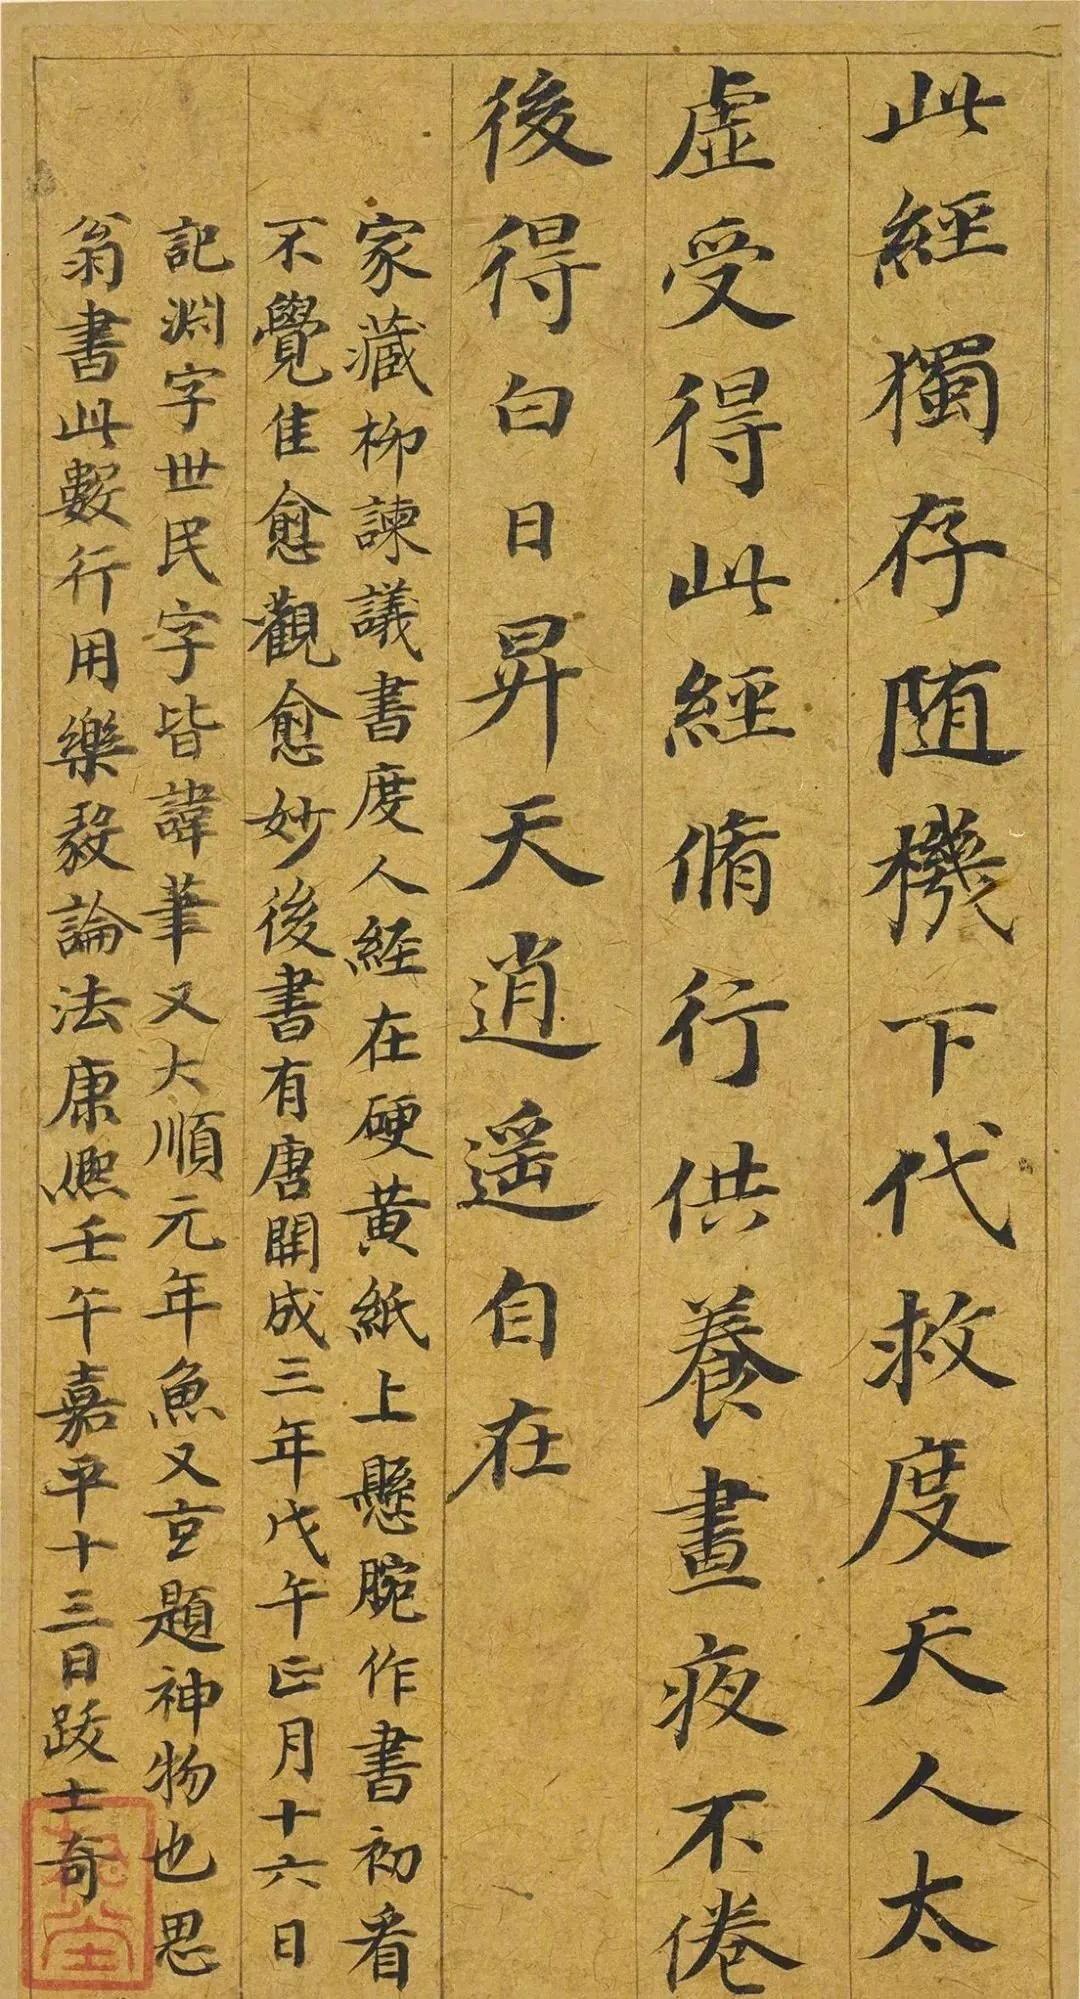 此經獨存随機下代救度天人太
虛受得此經脩行供養晝夜不倦
後得白日昇天逍遥自在
家藏柳諫議書度人經在硬黄紙上懸腕作書初看
不覺隹愈觀愈妙後書有唐開成三年戊午正月十六日
記淵字世民字皆諱筆又大順元年魚又玄題神物也思
翁書此數行用樂毅論法康熈壬午嘉平十三日跋士奇